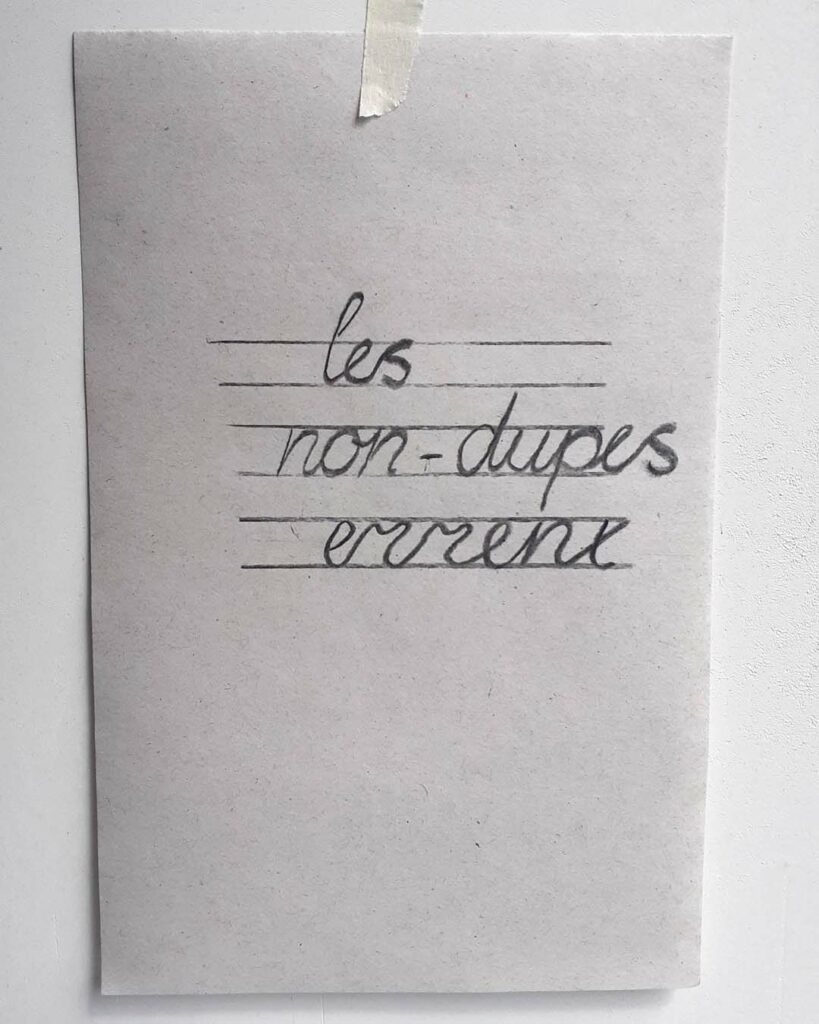 les
non-dupes
errent